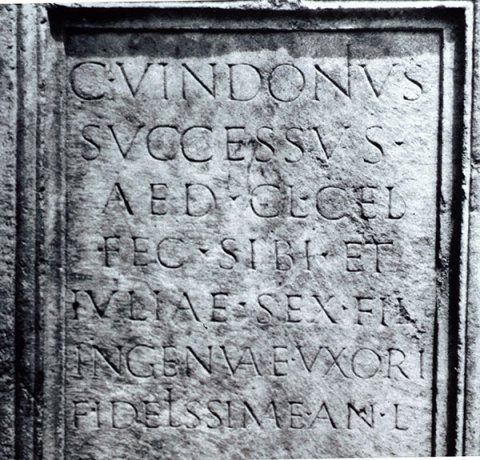 C·VINDONVS
SVCCESSVS·
AED·CL·CEL
FEC·SIBI·ET
IVLIAE·SEX·FIL
INGENVAE·VXORI
FIDELSSIME·AN·L